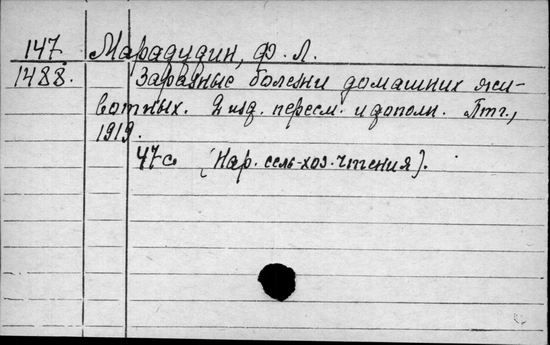 147 Марадудин, Ф. Л.
1488. Заразные болезни домашних жи-
вотных. 2 изд. пересм. и дополн. Птг.,
1919.
47 с. (Нар. сель-хоз. чтения).